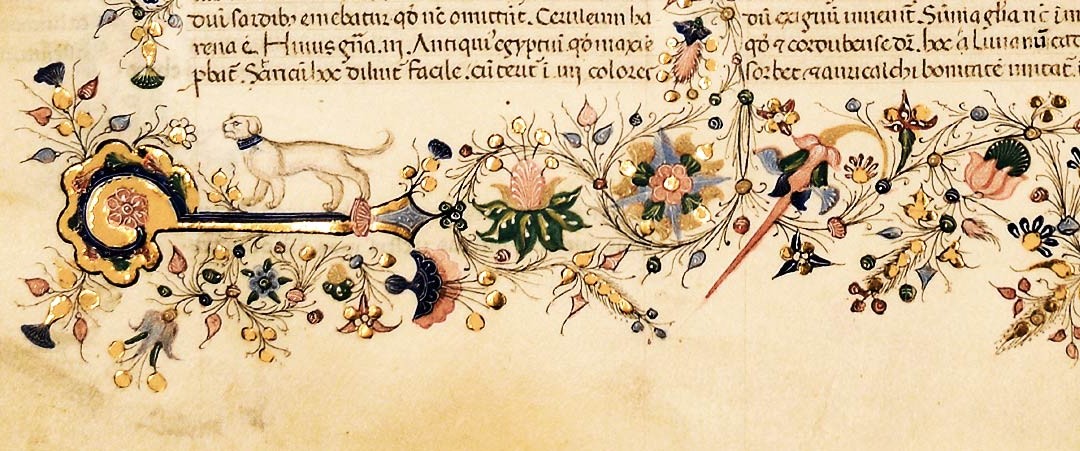 dui sordibꝫ emebatur qđ nc̄ omittūt. Ceruleum ha
rena ē. Huius gn̄a .iii. Antiqui egyptiū qđ maxīe
ꝓbat̄. Sancū hoc diluit̄ facile .cū terit̄ ī .iiii colores
diū exiguū inuenit. Sūma gl̄ia nc̄ in
qđ ⁊ cordubense dr̄. hoc a liuianū
sorbet ⁊ auricalchi bonitatē imitat̄.